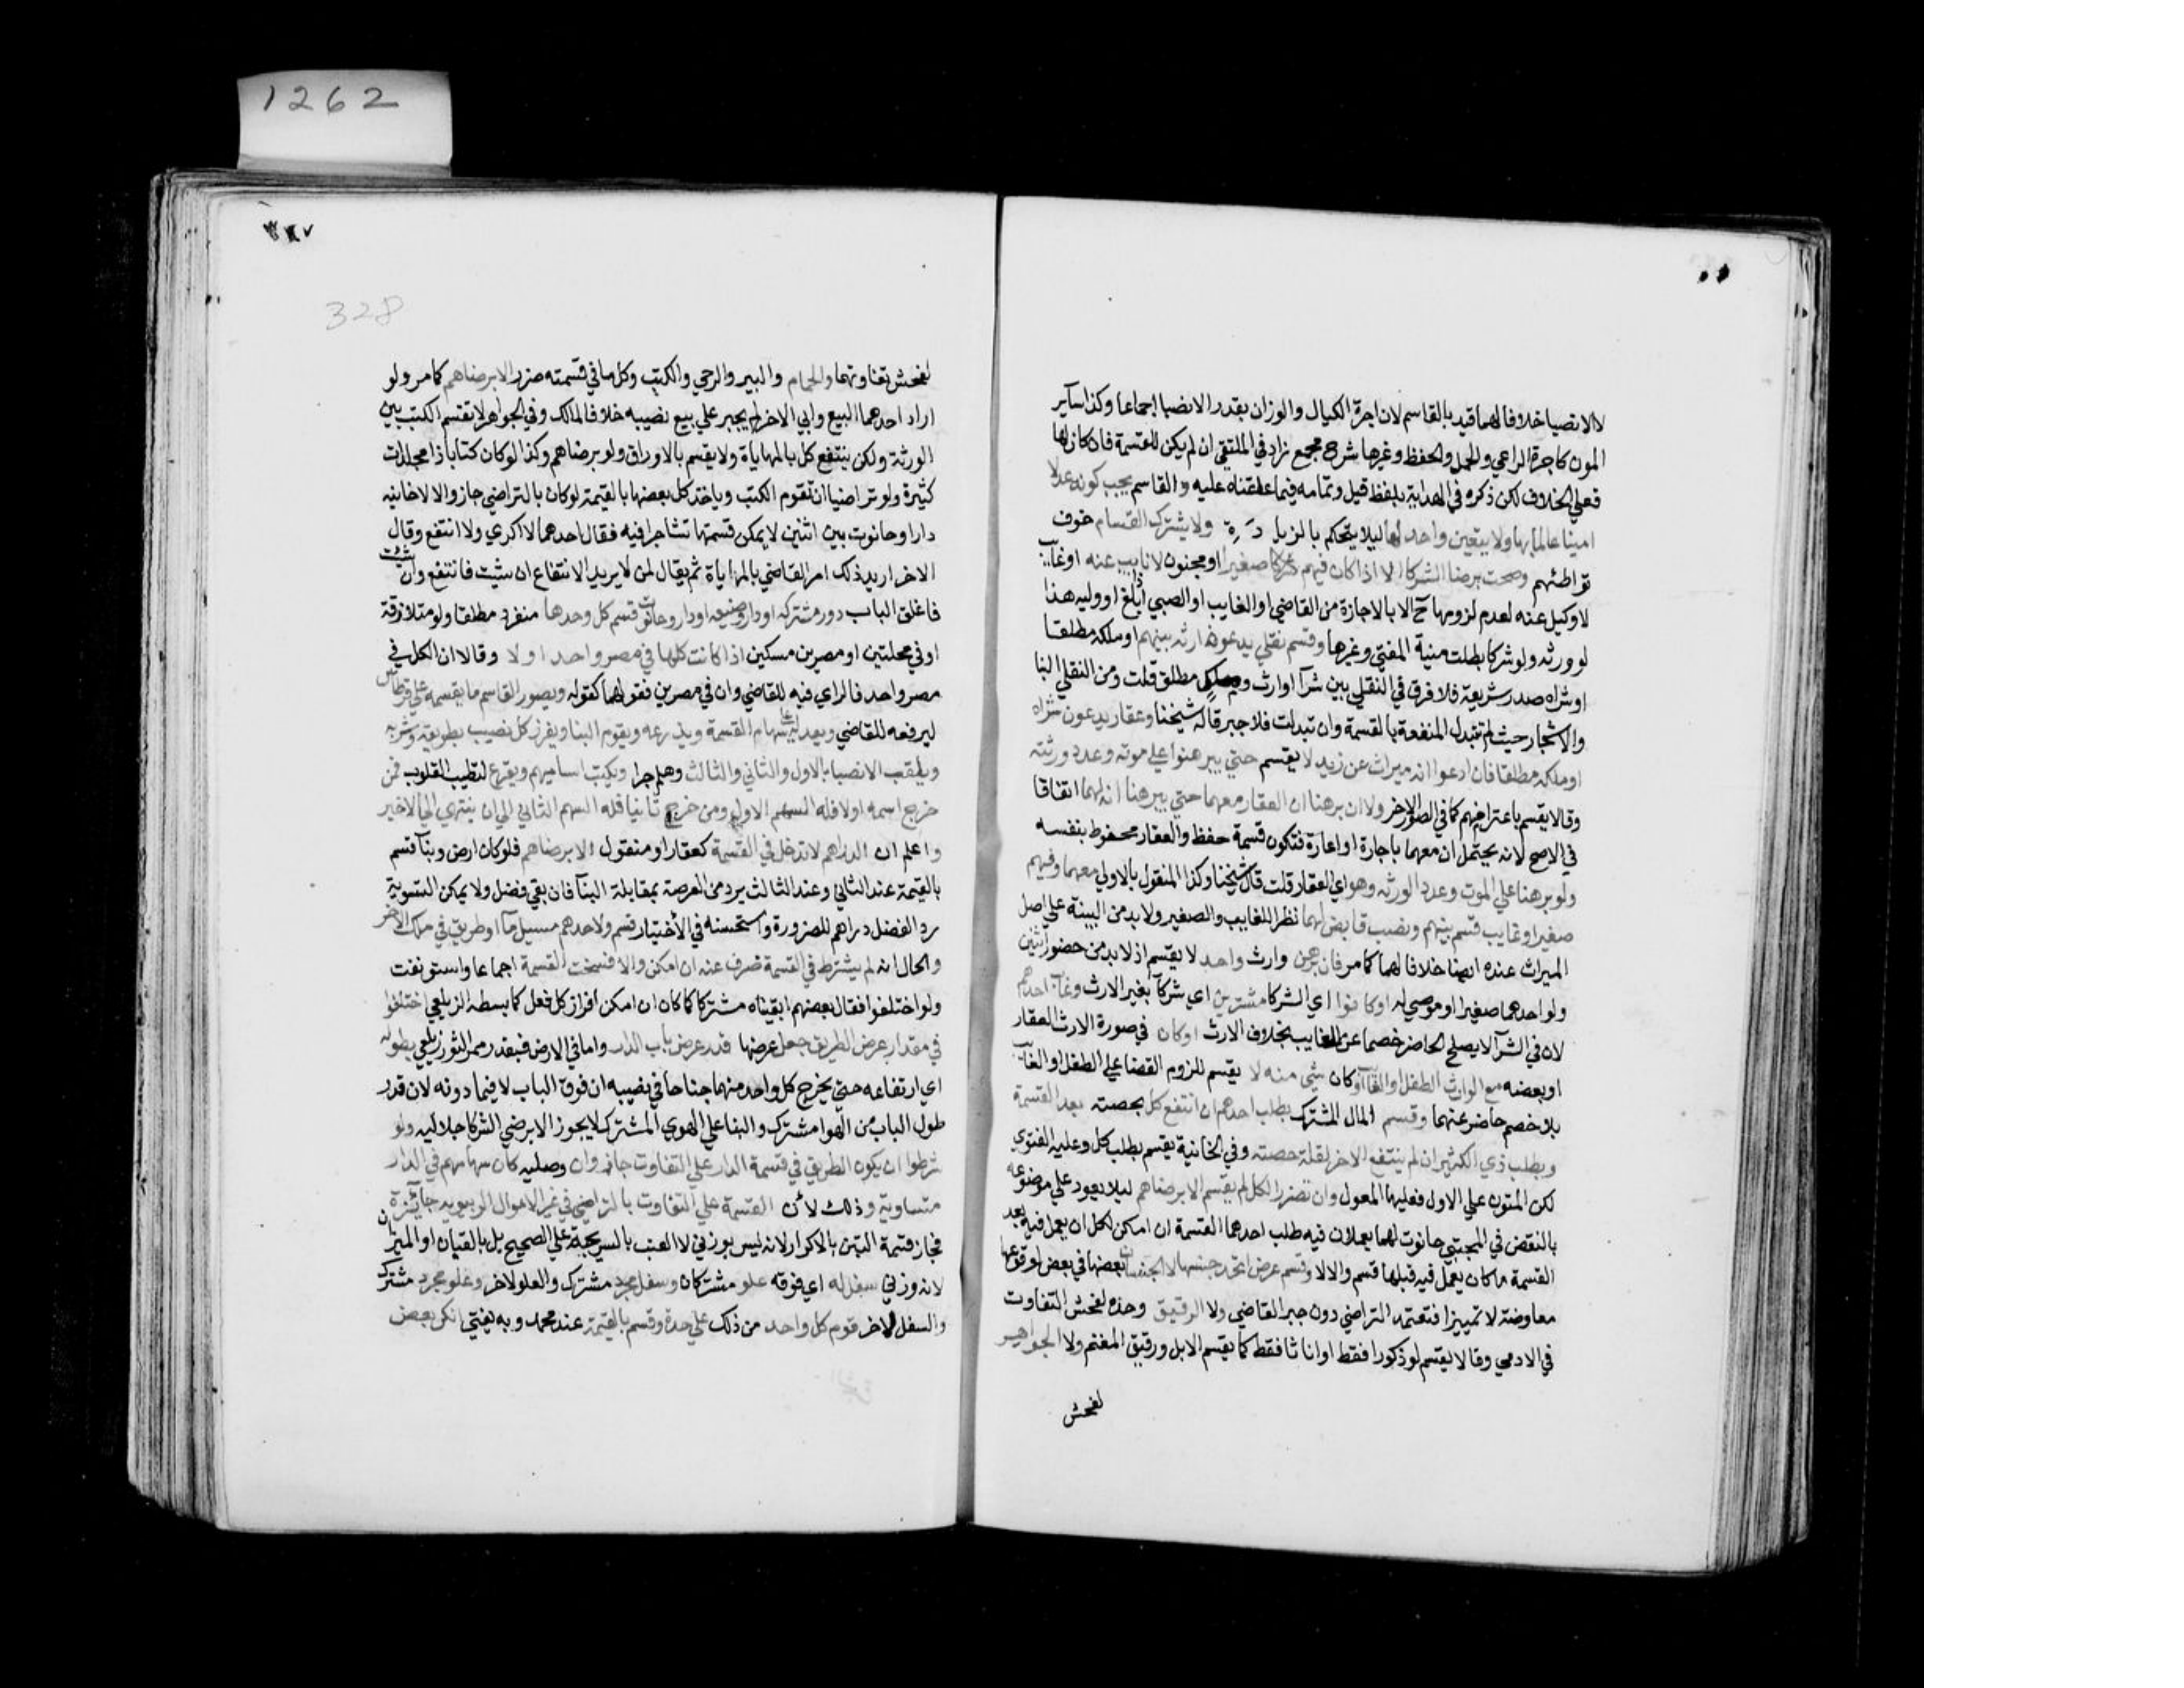 1262
لا الانصبا خلافا لهما قيد بالقاسم لان اجرة الكيال والوزان بقدر الانصبا اجماعا وكذا سآير
المون كاجرة الراعي والحمل والحفظ وغيرها شرح مجمع زاد في الملتقي ان لم يكن للقسمة فان كان لها
فعلي الخلاف لكن ذكره في الهداية بلفظ قيل وتمامه فيما علقناه عليه والقاسم يجب كونه عدلا
امينا عالما بها ولا يتعين واحد لها ليلا يتحكم بالزيادة ولا يشترك القسام خوف
تواطئهم وصحت برضا الشركا الا اذا كان فيهم صغير او مجنون لا نايب عنه او غايب
لا وكيل عنه لعدم لزومها ح الا بالاجازة من القاضي او الغايب او الصبي اذا بلغ او وليه هذا
لو ورثه ولو شركا بطلت منية المفتي وغيرها وقسم نقلي يدعون ارثه بينهم او ملكه مطلقا
او شراه صدر شريعة فلا فرق في النقلي بين شرآ وارث وملك مطلق قلت ومن النقلي البنا
والاشجار حيث لم تتبدل المنفعة بالقسمة وان تبدلت فلا جبر قاله شيخنا وعقار يدعون شراه
او ملكه مطلقا فان ادعوا انه ميراث عن زيد لا يقسم حتي يبرهنوا علي موته وعدد ورثته
وقالا يقسم باعترافهم كما في الصور الاخر ولا ان برهنا ان العقار معهما حتي يبرهنا انه لهما اتفاقا
في الاصح لانه يحتمل ان معهما باجارة او اعارة فتكون قسمة حفظ والعقار محفوظ بنفسه
ولو برهنا علي الموت وعدد الورثه وهو اي العقار قلت قال شيخنا وكذا المنقول بالاولي معهما وفيهم
صغير او غايب قسم بينهم ونصب قابض لهما نظرا للغايب والصغير ولا بد من البينة علي اصل
الميراث عنده ايضا خلافا لهما كما مر فان برهن وارث واحد لا يقسم اذ لا بد من حضور اثنين
ولو احدهما صغيرا او موصي له او كانوا اي الشركا مشترين اي شركآ بغير الارث وغاب احدهم
لان في الشرآ لا يصلح الحاضر خصما عن الغايب بخلاف الارث او كان في صورة الارث العقار
او بعضه مع الوارث الطفل او الغآيب او كان شي منه لا يقسم للزوم القضا علي الطفل او الغايب
بلا خصم حاضر عنهما وقسم المال المشترك بطلب احدهم ان انتفع كل بحصته بعد القسمة
وبطلب ذي الكثير ان لم ينتفع الاخر لقلة حصته وفي الخانية يقسم بطلب كل وعليه الفتوي
لكن المتون علي الاول فعليها المعول وان تضرر الكل لم يقسم الا برضاهم ليلا يعود علي موضوعه
بالنقض في المجتبي حانوت لهما يعملان فيه طلب احدهما القسمة ان امكن لكل ان يعمل فيه بعد
القسمة ما كان يعمل فيه قبلها قسم والا لا وقسم عرض اتحد جنسها لا الجنسان بعضها في بعض لوقوعها
معاوضة لا تمييزا فتعتمد التراضي دون جبر القاضي ولا الرقيق وحده لفحش التفاوت
في الادمي وقالا يقسم لو ذكورا فقط او اناثا فقط كما يقسم الابل ورقيق المغنم ولا الجواهر
لفحش
328
لفحش تفاوتها والحمام والبير والرحي والكتب وكل ما في قسمته ضرر الا برضاهم كما مر ولو
اراد احدهما البيع وابي الاخر لم يجبر علي بيع نصيبه خلافا لمالك وفي الجواهر لا تقسم الكتب بين
الورثة ولكن ينتفع كل بالمهاياة ولا يقسم بالاوراق ولو برضاهم وكذا لو كان كتابا ذا مجلدات
كثيرة ولو تراضيا ان تقوم الكتب وياخذ كل بعضها بالقيمة لو كان بالتراضي جاز والا لا خانيه
دار او حانوت بين اثنين لا يمكن قسمتها تشاجرا فيه فقال احدهما لا اكري ولا انتفع وقال
الاخر اريد ذلك امر القاضي بالمهاياة ثم يقال لمن لا يريد الانتفاع ان شيت فانتفع وان شئت
فاغلق الباب دور مشتركه او دار وضيعه او دار وحانوت قسم كل وحدها منفردة مطلقا ولو متلازقة
او في محلتين او مصرين مسكين اذا كانت كلها في مصر واحد او لا وقالا ان الكل في
مصر واحد فالراي فيه للقاضي وان في مصرين فقولهما كقوله ويصور القاسم ما يقسمه علي قرطاس
ليرفعه للقاضي ويعدله علي سهام القسمة ويذرعه ويقوم البنا ويفرز كل نصيب بطريقه وشربه
ويلقب الانصبا بالاول والثاني والثالث وهلم جرا ويكتب اساميهم ويقرع لتطيب القلوب فمن
خرج اسمه اولا فله السهم الاول ومن خرج ثانيا فله السهم الثاني الي ان ينتهي الي الاخير
واعلم ان الدراهم لا تدخل في القسمة كعقار او منقول الا برضاهم فلو كان ارض وبنآ قسم
بالقيمة عند الثاني وعند الثالث يرد من العرصة بمقابلة البنآ فان بقي فضل ولا يمكن التسوية
رد الفضل دراهم للضرورة واستحسنه في الاختيار قسم ولاحدهم مسيل مآ او طريق في ملك الاخر
والحال انه لم يشترط في القسمة صرف عنه ان امكن والا فسخت القسمة اجماعا واستونفت
ولو اختلفوا فقال بعضهم ابقيناه مشتركا كما كان ان امكن افراز كل فعل كما بسطه الزيلعي اختلفوا
في مقدار عرض الطريق جعل عرضها قدر عرض باب الدار واما في الارض فبقدر ممر الثور زيلعي بطوله
اي ارتفاعه حتي يخرج كل واحد منهما جناحا في نصيبه ان فوق الباب لا فيما دونه لان قدر
طول الباب من الهوا مشترك والبنا علي الهوي المشترك لا يجوز الا برضي الشركا جلاليه ولو
شرطوا ان يكون الطريق في قسمة الدار علي التفاوت جاز وان وصليه كان سهامهم في الدار
متساوية وذلك لان القسمة علي التفاوت بالتراضي في غير الاموال الربويه جايزة
فجاز قسمة التين بالاكرار لانه ليس بوزني لا العنب بالسريجة علي الصحيح بل بالقبان او الميزان
لانه وزني سفل له اي فوقه علو مشتركان وسفل مجرد مشترك والعلو لاخر وعلو مجرد مشترك
والسفل لاخر قوم كل واحد من ذلك علي حدة وقسم بالقيمة عند محمد وبه يفتي انكر بعض